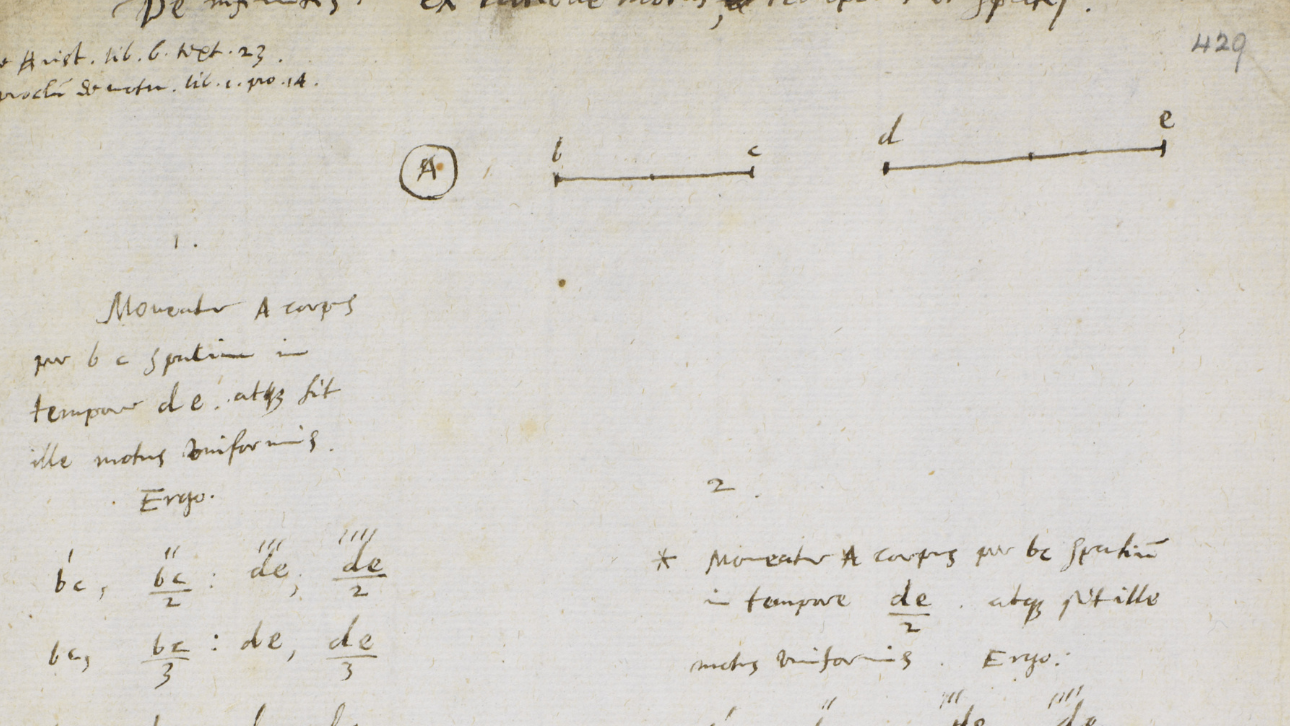 De infinitis. Ex ratione motus, et spatij.
Arist. lib. 6. text. 23.
de motu. lib. 1. pro. 14.
429
A
b c
d e
1.
Moveatur A corpus
per bc spatium in
tempore de. atqꝫ sit
ille motus uniformis.
Ergo.
' '' ''' ''''
bc, bc/2 : de, de/2
bc, bc/3 : de, de/3
2.
* Moveatur A corpus per bc spatiū
in tempore de/2. atqꝫ sit ille
motus uniformis. Ergo:
' '' ''' ''''
de de